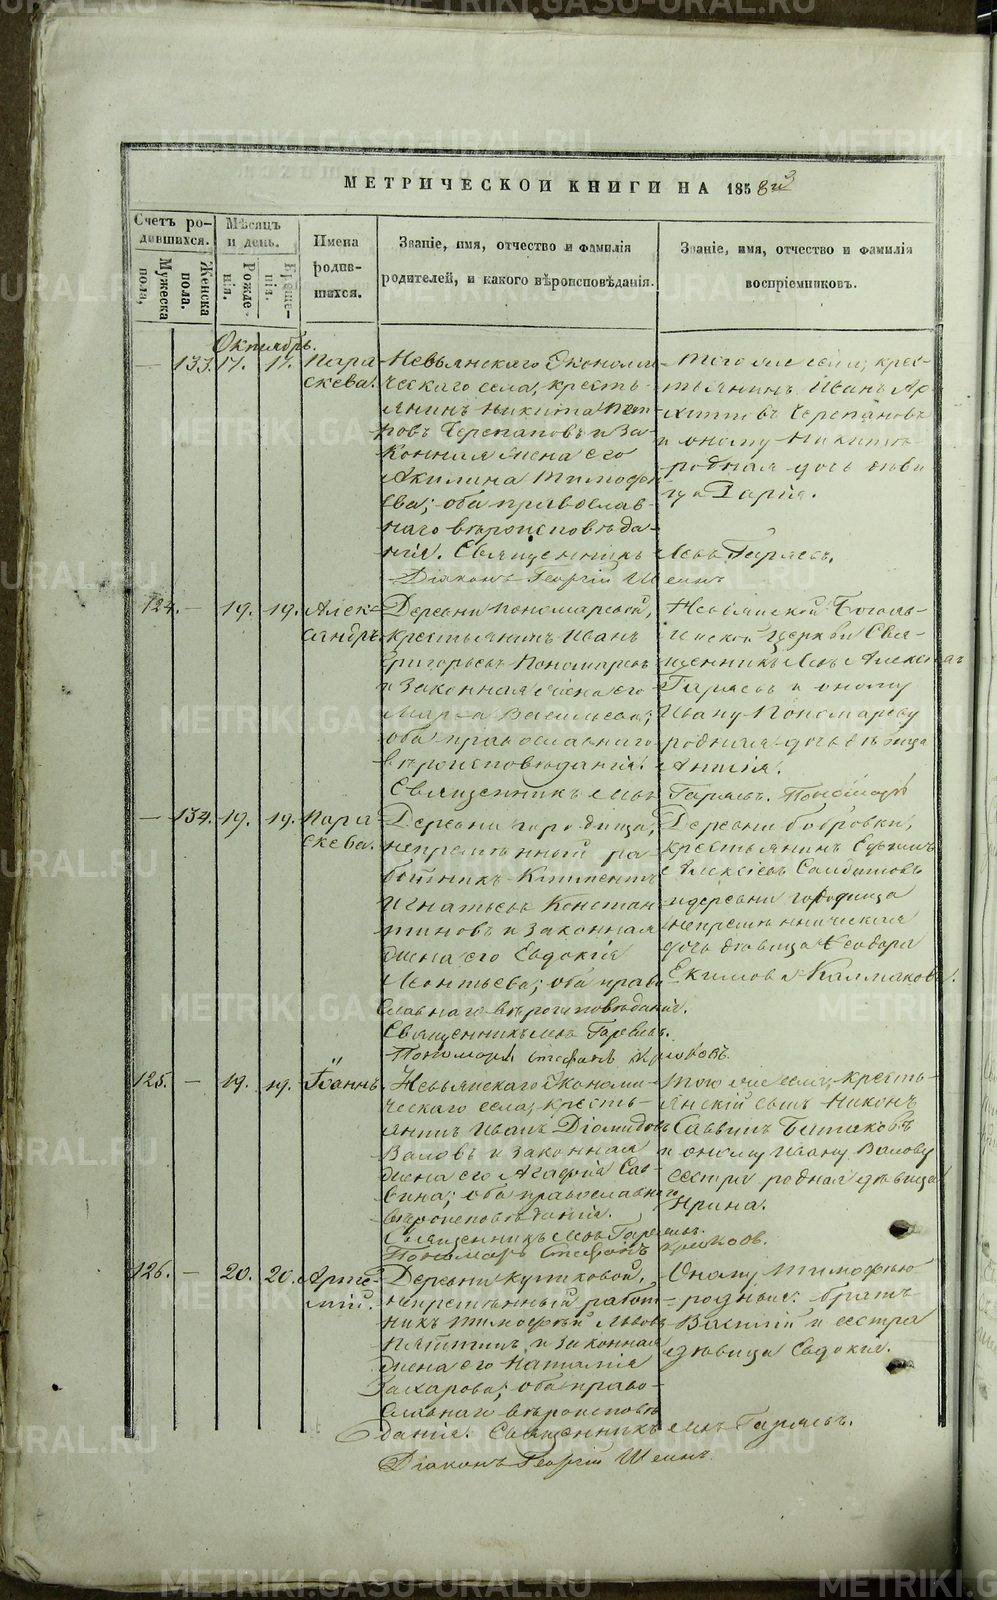 МЕТРИЧЕСКОЙ КНИГИ НА 1858 й
Счетъ ро-
дившихся.
Мужеска
пола.
Женска
пола.
Мѣсяцъ
и день.
Рожде-
нія.
Креще-
нія.
Имена
родив-
шихся.
Званіе, имя, отчество и фамилія
родителей, и какого вѣроисповѣданія.
Званіе, имя, отчество и фамилія
воспріемниковъ.
Октябрь.
133. 17. 17.
Пара
скева.
Невьянскаго Экономи
ческаго села, кресть-
янинъ Никита
повъ Черепановъ и за
конная жена его
Акилина Тимофе
ева; оба православ-
наго вѣроисповѣда-
нія. Священникъ Левъ Гаряевъ.
Діаконъ Георгій Шеинъ
того же села, крес-
тьянинъ Иванъ Ар
Черепановъ
и оному Никитѣ
родная дочь дѣви
ца Дарія.
124. - 19. 19.
Алек-
сандръ
Деревни Пономаревой,
крестьянинъ Иванъ
Григорьевъ Пономаревъ
и законная жена его
Марѳа Васильева;
оба православнаго
вѣроисповѣданія.
Священникъ Левъ Гаряевъ. Пономарь
Невьянской Богояв-
ленской церкви Свя-
щенникъ Левъ Алексѣевъ
Гаряевъ и оному
Ивану Пономареву
родная дочь дѣвица
- 134. 19. 19.
Пара
скева.
Деревни Городища,
непремѣнный ра-
ботникъ Климентъ
Игнатьевъ Констан
тиновъ и законная
жена его Евдокія
Леонтьева; оба право
славнаго вѣроисповѣданія.
Священникъ Левъ Гаряевъ.
Пономарь Стефанъ Крюковъ.
Деревни Бобровки,
крестьянинъ Ефимъ
Алексѣевъ Солдатовъ
и деревни Городища
непремѣнническая
дочь дѣвица Ѳеодора
Екимова Калмакова.
125. - 19. 19.
Іоаннъ.
Невьянскаго Экономи-
ческаго села, кресть-
янинъ Иванъ Діомидовъ
Валовъ и законная
жена его Агафія Сав-
вина; оба православнаго
вѣроисповѣданія.
Священникъ Левъ Гаряевъ.
Пономарь Стефанъ Крюковъ.
того же села, кресть-
янскій сынъ Никонъ
Саввинъ
и оному Ивану Валову
сестра родная дѣвица
Ирина.
126. - 20. 20.
Арте-
мій.
Деревни Куликовой,
непремѣнный работ-
никъ Тимофей Львовъ
и законная
жена его Наталія
Захарова; оба право-
славнаго вѣроисповѣ
данія. Священникъ Левъ Гаряевъ.
Діаконъ Георгій Шеинъ.
Оному Тимофею
родные: братъ
Василій и сестра
дѣвица Евдокія.
METRIKI.GASO-URAL.RU